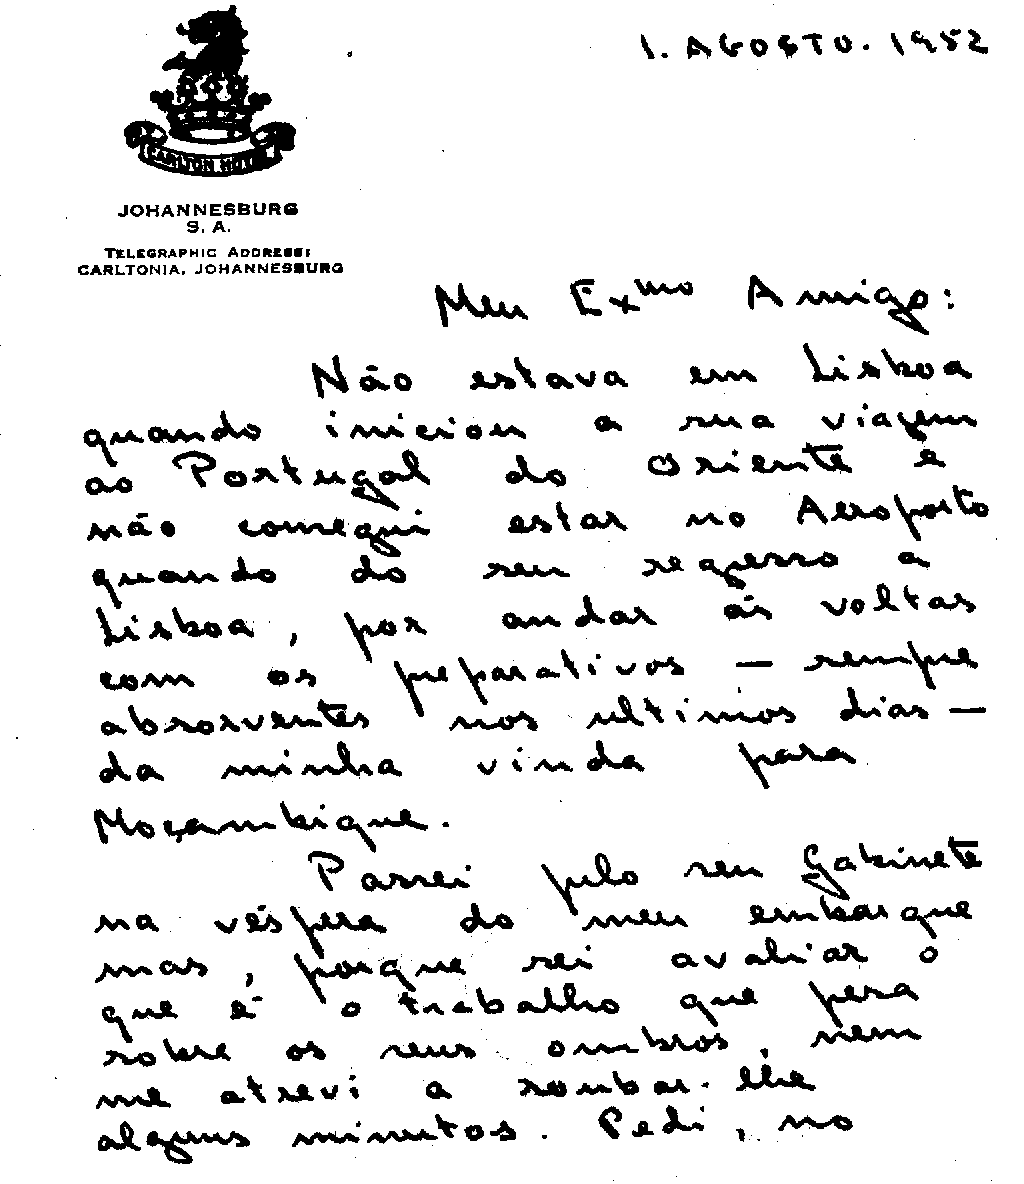 1. AGOSTO. 1952
CARLTON HOTEL
JOHANNESBURG
S. A.
TELEGRAPHIC ADDRESS:
CARLTONIA, JOHANNESBURG
Meu Exmo Amigo:
Não estava em Lisboa
quando iniciou a sua viagem
ao Portugal do Oriente e
não consegui estar no Aeroporto
quando do seu regresso a
Lisboa, por andar às voltas
com os preparativos — sempre
absorventes nos ultimos dias —
da minha vinda para
Moçambique.
Passei pelo seu Gabinete
na véspera do meu embarque
mas, porque sei avaliar o
que é o trabalho que pesa
sobre os seus ombros, nem
me atrevi a roubar-lhe
alguns minutos. Pedi, no